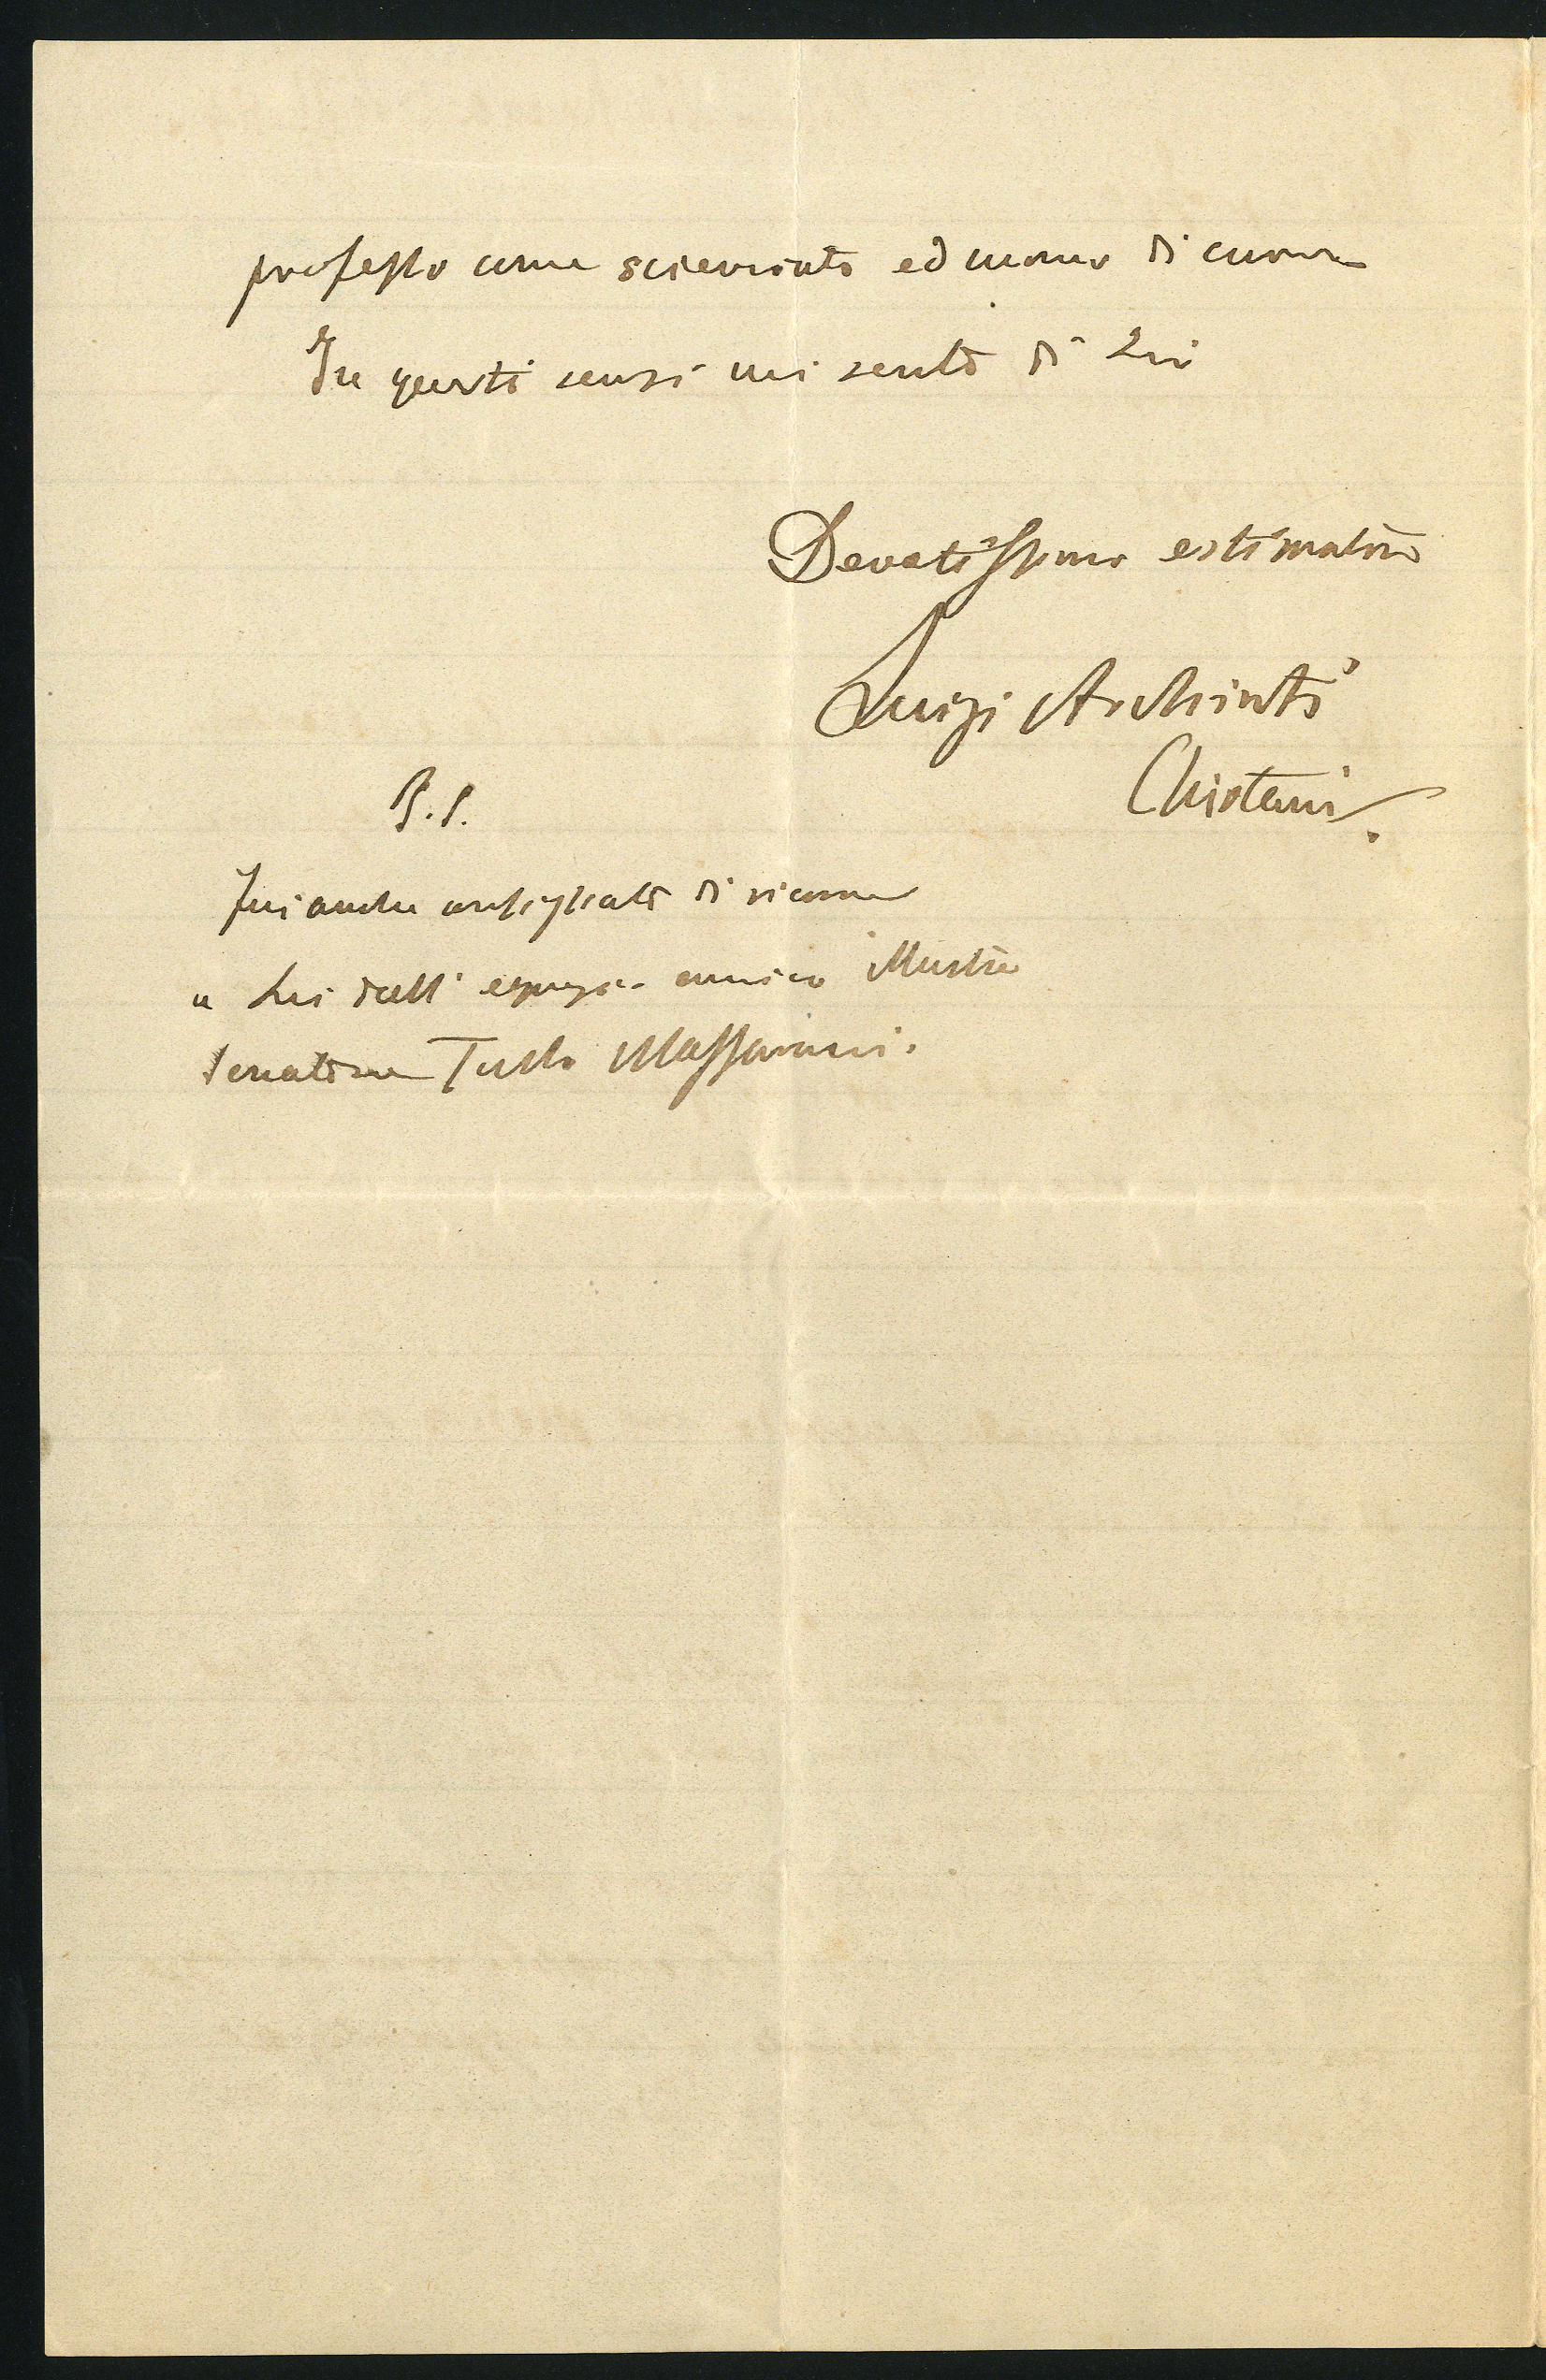 professo come scienziato ed uomo di cuore
In questi sensi mi sento di Lei
Devotissimo estimatore
Luigi Archinti
Chirtani.
P.S.
Fui anche consigliato di ricorrere
a Lei dall' egregio amico Illustre
Senatore Tullo Massarani.